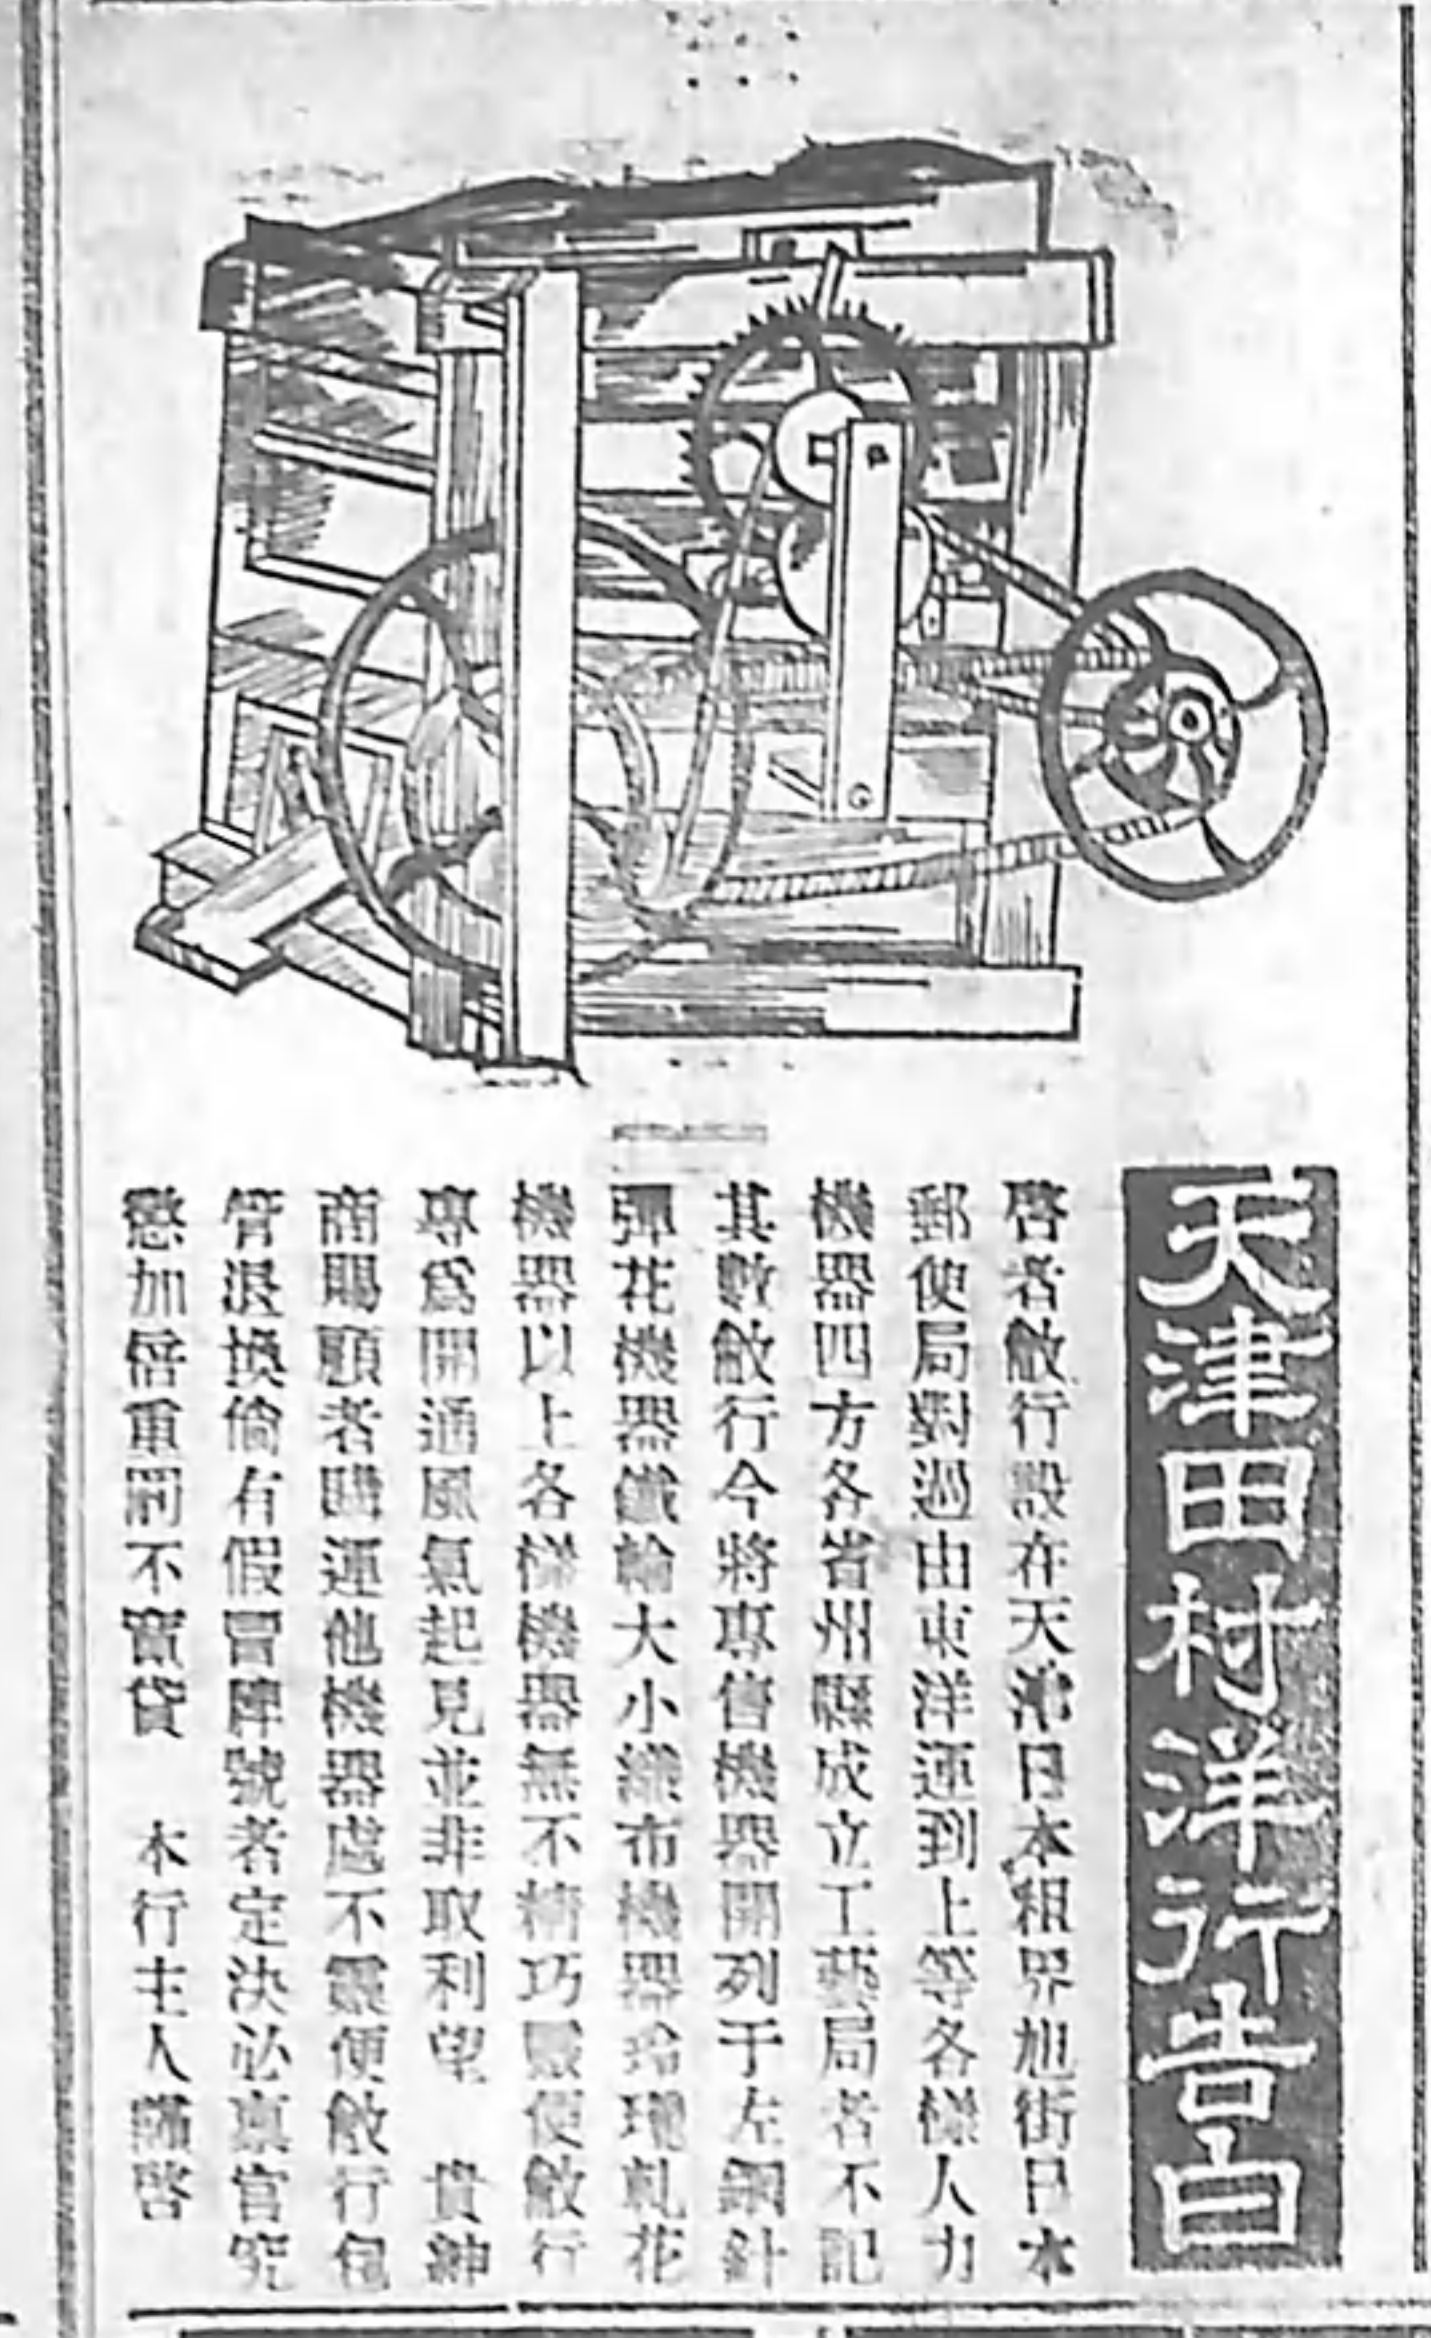 天津田村洋行告白
啓者敝行設在天津日本租界旭街日本
郵便局對過由東洋運到上等各樣人力
機器四方各省州縣成立工藝局者不記
其數敝行今將專售機器開列于左鋼針
彈花機器鐵輪大小織布機器玲瓏軋花
機器以上各樣機器無不精巧靈便敝行
專爲開通風氣起見並非取利望 貴紳
商賜顧者購運他機器處不靈便敝行包
管退換倘有假冒牌號者定決必稟官究
懲加倍重罰不實貸 本行主人謹啓